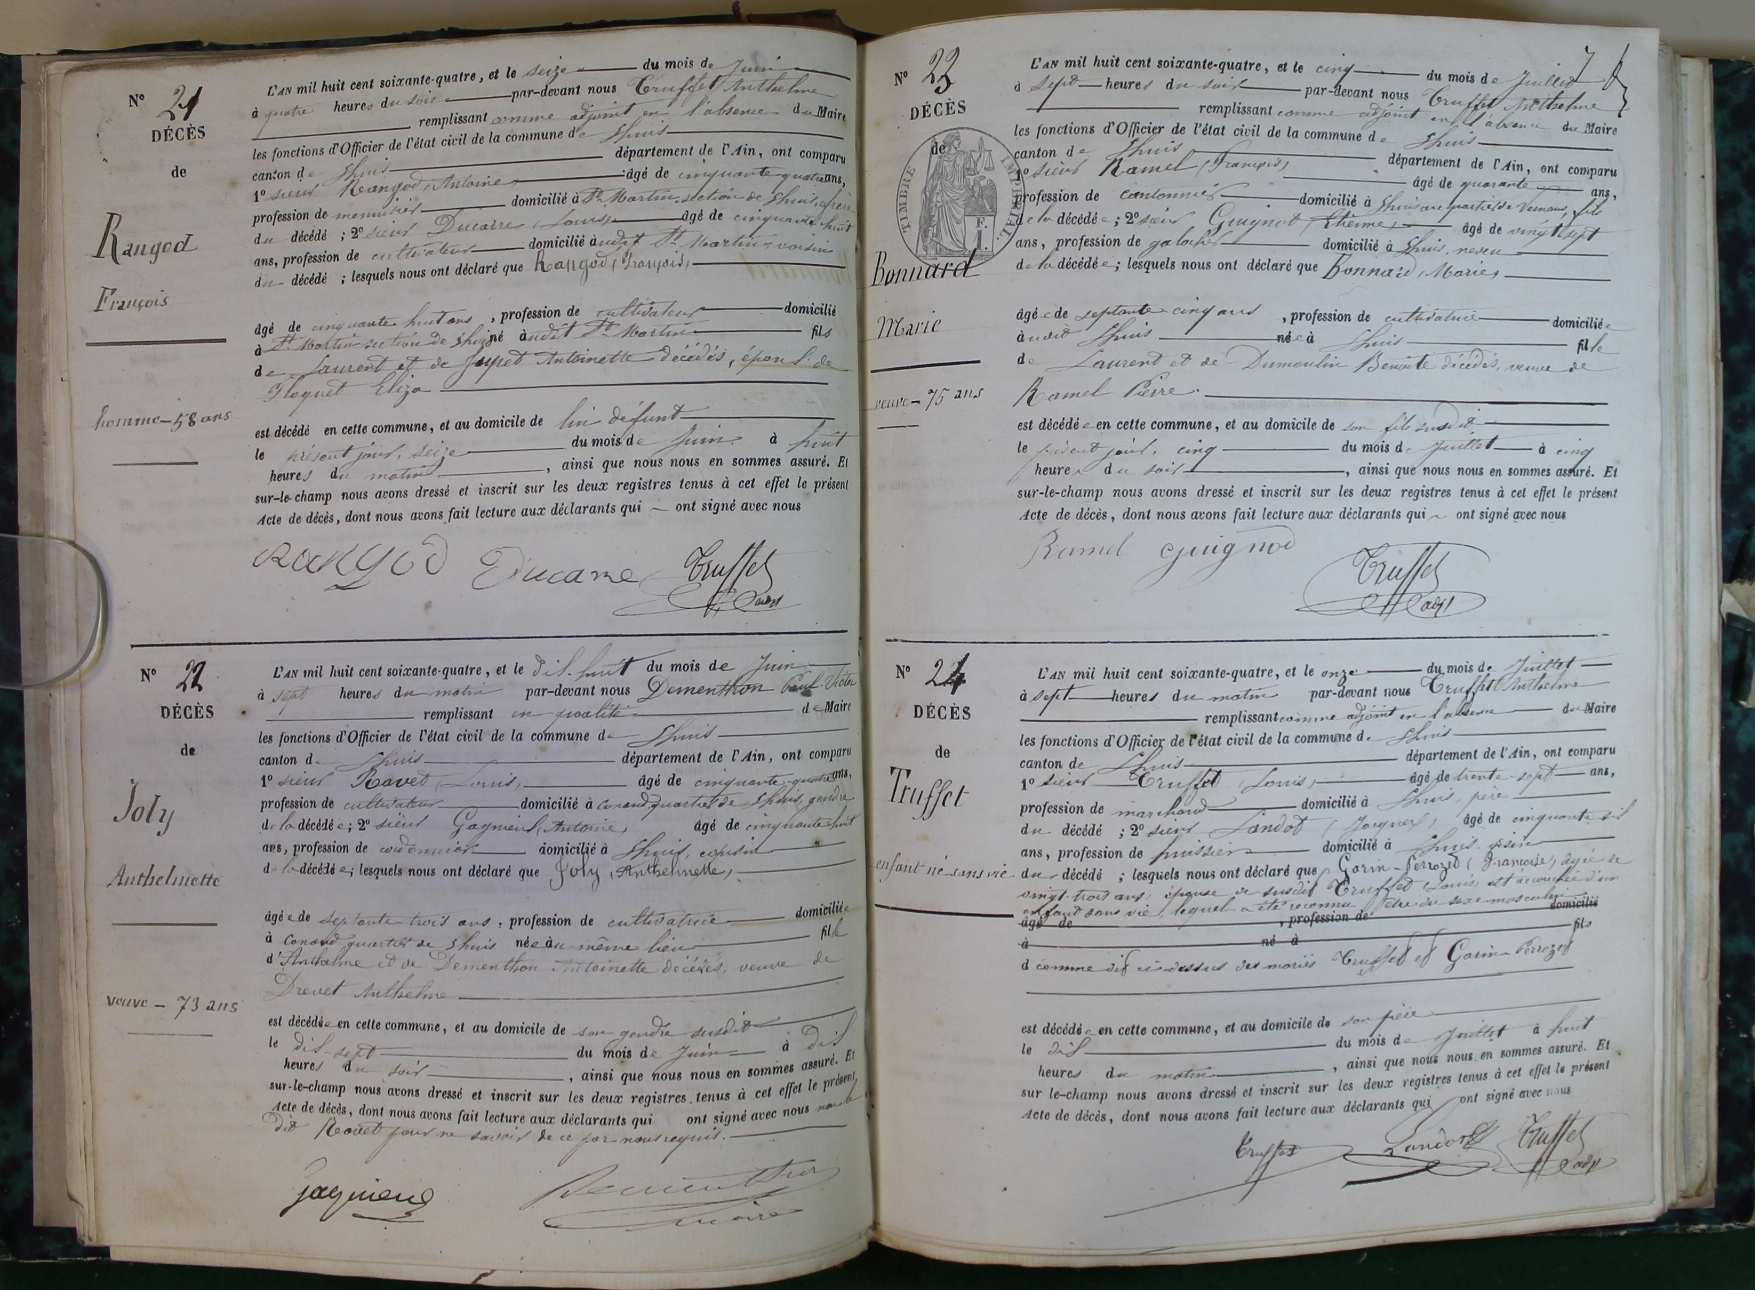 N° 21
DÉCÈS
de
Rangod
François
homme - 58 ans
L'AN mil huit cent soixante-quatre, et le seize du mois de Juin
à quatre heures du soir par-devant nous Truffet Anthelme
remplissant comme adjoint en l'absence du Maire
les fonctions d'Officier de l'état civil de la commune de Lhuis
canton de Lhuis département de l'Ain, ont comparu
1° sieur Rangod, Antoine, âgé de cinquante quatre ans,
profession de menuisier domicilié à St Martin, section de Lhuis, frère
du décédé ; 2° sieur Ducarre (Louis) âgé de cinquante huit
ans, profession de cultivateur domicilié audit St Martin, voisin
du décédé ; lesquels nous ont déclaré que Rangod (François)
âgé de cinquante huit ans, profession de cultivateur domicilié
à St Martin section de Lhuis né audit St Martin fils
de Laurent et de Antoinette décédés, époux de
Floquet Eliza
est décédé en cette commune, et au domicile de lui défunt
le présent jour, seize du mois de Juin à huit
heures du matin, ainsi que nous nous en sommes assuré. Et
sur-le-champ nous avons dressé et inscrit sur les deux registres tenus à cet effet le présent
Acte de décès, dont nous avons fait lecture aux déclarants qui ont signé avec nous
RANGOD Ducarre Truffet
adjt
N° 22
DÉCÈS
de
Joly
Anthelmette
veuve - 73 ans
L'AN mil huit cent soixante-quatre, et le dix huit du mois de Juin
à sept heures du matin par-devant nous Dementhon Paul Victor
remplissant en qualité de Maire
les fonctions d'Officier de l'état civil de la commune de Lhuis
canton de Lhuis département de l'Ain, ont comparu
1° sieur Ravet, Louis, âgé de cinquante quatre ans,
profession de cultivateur domicilié à Conand quartier de Lhuis, gendre
de la décédée ; 2° sieur (Antoine) âgé de cinquante huit
ans, profession de cordonnier domicilié à Lhuis, cousin
de la décédée ; lesquels nous ont déclaré que Joly (Anthelmette)
âgée de septante trois ans, profession de cultivatrice domiciliée
à Conand quartier de Lhuis née au même lieu fille
d'Anthelme et de Dementhon Antoinette décédés, veuve de
Drevet Anthelme
est décédée en cette commune, et au domicile de son gendre susdit
le dix sept du mois de Juin à dix
heures du soir, ainsi que nous nous en sommes assuré. Et
sur-le-champ nous avons dressé et inscrit sur les deux registres tenus à cet effet le présent
Acte de décès, dont nous avons fait lecture aux déclarants qui ont signé avec nous non le
dit Ravet pour ne savoir de ce par nous requis.
Dementhon
maire
N° 23
DÉCÈS
de
TIMBRE IMPÉRIAL
F. 1.
Bonnard
Marie
veuve - 75 ans
L'AN mil huit cent soixante-quatre, et le cinq du mois de Juillet 7
à sept heures du soir par-devant nous Truffet Anthelme
remplissant comme adjoint en l'absence du Maire
les fonctions d'Officier de l'état civil de la commune de Lhuis
canton de Lhuis département de l'Ain, ont comparu
1° sieur Ramel (François) âgé de quarante ans,
profession de cantonnier domicilié à Lhuis au quartier de fils
de la décédée ; 2° sieur Guignod (Etienne) âgé de vingt sept
ans, profession de galocher domicilié à Lhuis, neveu
de la décédée ; lesquels nous ont déclaré que Bonnard (Marie)
âgée de septante cinq ans, profession de cultivatrice domiciliée
à audit Lhuis née à Lhuis fille
de Laurent et de Dumoulin Benoite décédés, veuve de
Ramel Pierre
est décédée en cette commune, et au domicile de son fils susdit
le présent jour, cinq du mois de Juillet à cinq
heures du soir, ainsi que nous nous en sommes assuré. Et
sur-le-champ nous avons dressé et inscrit sur les deux registres tenus à cet effet le présent
Acte de décès, dont nous avons fait lecture aux déclarants qui ont signé avec nous
Ramel Guignod Truffet
adjt
N° 24
DÉCÈS
de
Truffet
enfant né sans vie
L'AN mil huit cent soixante-quatre, et le onze du mois de Juillet
à sept heures du matin par-devant nous Truffet Anthelme
remplissant comme adjoint en l'absence du Maire
les fonctions d'Officier de l'état civil de la commune de Lhuis
canton de Lhuis département de l'Ain, ont comparu
1° sieur Truffet (Louis) âgé de trente sept ans,
profession de marchand domicilié à Lhuis, père
du décédé ; 2° sieur Landot (Jacques) âgé de cinquante six
ans, profession de huissier domicilié à Lhuis, voisin
du décédé ; lesquels nous ont déclaré que Gorin-Perrozet (Françoise) âgée de
vingt trois ans, épouse de susdit Truffet Louis est accouchée d'un
enfant sans vie, lequel a été reconnu être du sexe masculin
âgé de , profession de domicilié
à né à fils
d comme dit ci-dessus des mariés Truffet et Gorin-Perrozet
est décédé en cette commune, et au domicile de son père
le dix du mois de Juillet à huit
heures du matin, ainsi que nous nous en sommes assuré. Et
sur le-champ nous avons dressé et inscrit sur les deux registres tenus à cet effet le présent
Acte de décès, dont nous avons fait lecture aux déclarants qui ont signé avec nous
Truffet Landot Truffet
adjt